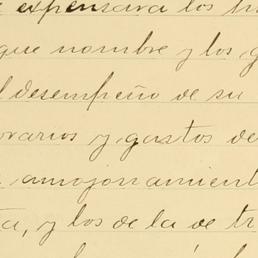 expensara los
que nombre y los g
desempeño de su
orarios y gastos de
amojonamient
ta, y los de la de tr